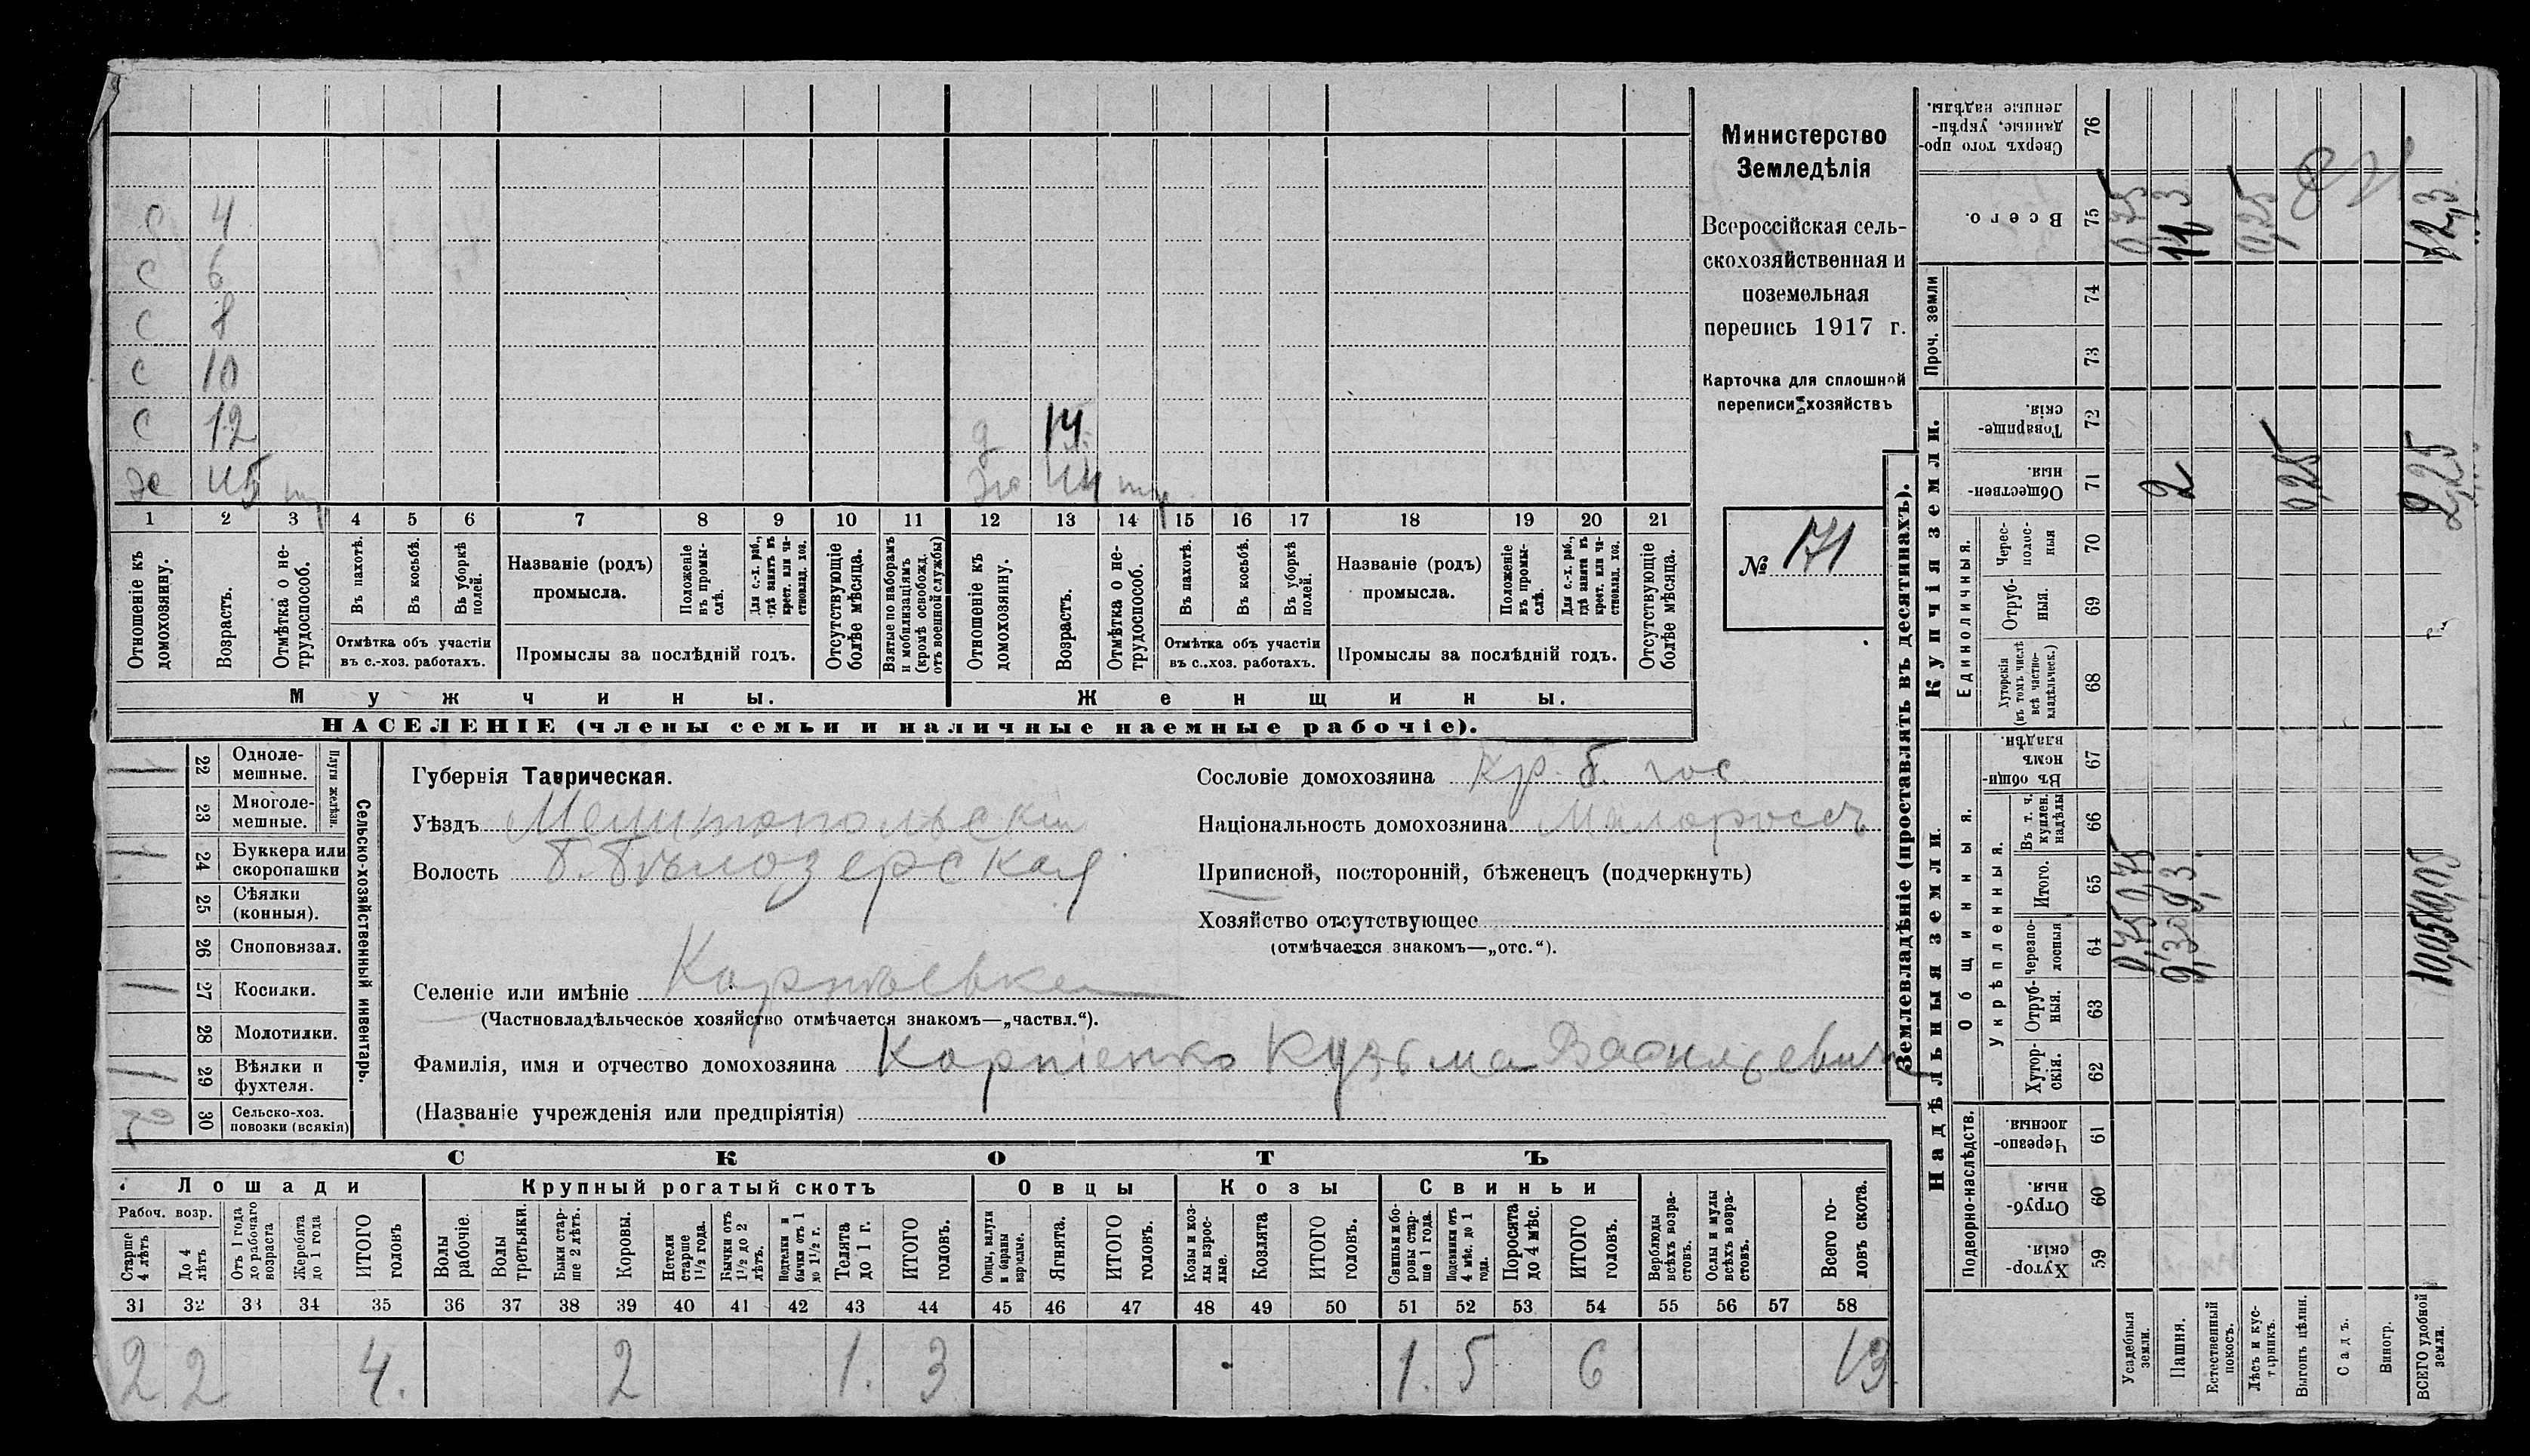 с 4
с 6
с 8
с 10
с 12 д 14
хо 45 тр хо 44 тр
1 2 3 4 5 6 7 8 9 10 11 12 13 14 15 16 17 18 19 20 21
Отношеніе къ домохозяину.
Возрастъ.
Отмѣтка о не-трудоспособ.
Въ пахотѣ.
Въ косьбѣ.
Въ уборкѣ полей.
Отмѣтка объ участіи
въ с.-хоз. работахъ.
Названіе (родъ)
промысла.
Положеніе въ промы-слѣ.
Для с.-х. раб., гдѣ занятъ въ крест. или ча-стновлад. хоз.
Промыслы за послѣдній годъ.
Отсутствующіе болѣе мѣсяца.
Взятые по наборамъ и мобилизаціямъ (кромѣ освобожд. отъ военной службы)
Отношеніе къ домохозяину.
Возрастъ.
Отмѣтка о не-трудоспособ.
Въ пахотѣ.
Въ косьбѣ.
Въ уборкѣ полей.
Отмѣтка объ участіи
въ с.-хоз. работахъ.
Названіе (родъ)
промысла.
Положеніе въ промы-слѣ.
Для с.-х. раб., гдѣ занята въ крест. или ча-стновлад. хоз.
Промыслы за послѣдній годъ.
Отсутствующіе болѣе мѣсяца.
Мужчины. Женщины.
НАСЕЛЕНІЕ (члены семьи и наличные наемные рабочіе).
Министерство
Земледѣлія
Всероссійская сель-
скохозяйственная и
поземельная
перепись 1917 г.
Карточка для сплошной
переписи хозяйствъ
№ 171
Сельско-хозяйственный инвентарь.
Плуги желѣзн.
22 Одноле-мешные.
23 Многоле-мешные.
24 Буккера или скоропашки
25 Сѣялки (конныя).
26 Сноповязал.
27 Косилки.
28 Молотилки.
29 Вѣялки и фухтеля.
30 Сельско-хоз. повозки (всякія)
Губернія Таврическая.
Уѣздъ Мелитопольскій
Волость Б. Бѣлозерская
Селеніе или имѣніе
(Частновладѣльческое хозяйство отмѣчается знакомъ—„частвл.“).
Фамилія, имя и отчество домохозяина Карпіенко Кузьма Васильевич
(Названіе учрежденія или предпріятія)
Сословіе домохозяина Кр. б. гос.
Національность домохозяина Малороссъ
Приписной, посторонній, бѣженецъ (подчеркнуть)
Хозяйство отсутствующее
(отмѣчается знакомъ—„отс.“).
СКОТЪ
Лошади Крупный рогатый скотъ Овцы Козы Свиньи
Рабоч. возр.
Старше 4 лѣтъ
До 4 лѣтъ
Отъ 1 года до рабочаго возраста
Жеребята до 1 года
ИТОГО головъ
Волы рабочіе.
Волы третьяки.
Быки стар-ше 2 лѣтъ.
Коровы.
Нетели старше 1½ года.
Бычки отъ 1½ до 2 лѣтъ.
Подтелки и бычки отъ 1 до 1½ г.
Телята до 1 г.
ИТОГО головъ.
Овцы, валухи и бараны взрослые.
Ягнята.
ИТОГО головъ.
Козы и коз-лы взрос-лые.
Козлята
ИТОГО головъ.
Свиньи и бо-ровы стар-ше 1 года.
Подсвинки отъ 4 мѣс. до 1 года.
Поросята до 4 мѣс.
ИТОГО головъ.
Верблюды всѣхъ возра-стовъ.
Ослы и мулы всѣхъ возра-стовъ.
Всего го-ловъ скота.
31 32 33 34 35 36 37 38 39 40 41 42 43 44 45 46 47 48 49 50 51 52 53 54 55 56 57 58
2 2 4. 2 1. 3 1. 5 6 13
Землевладѣніе (проставлять въ десятинахъ).
Надѣльныя земли.
Купчія земли.
Проч. земли
Подворно-наслѣдств.
Общинныя.
Укрѣпленныя.
Единоличныя.
Хутор-скія. 59
Отруб-ныя. 60
Черезпо-лосныя. 61
Хутор-скія. 62
Отруб-ныя. 63
Черезпо-лосныя 64
Итого. 65
Въ т. ч. куплен. надѣлы 66
Въ общи-номъ владѣн. 67
Хуторскія (въ томъ числѣ всѣ частно-владѣльческ.) 68
Отруб-ныя. 69
Черес-полос-ныя 70
Обществен-ныя. 71
Товарище-скія. 72
73
74
Всего. 75
Сверхъ того про-данные, укрѣп-ленные надѣлы. 76
Усадебныя земли. 0,75 0,75 0,75
Пашня. 9,3 9,3 2 11,3
Естественный покосъ.
Лѣсъ и кус-тарникъ. 0,25
Выгонъ цѣлин. 0,25
Садъ.
Виногр.
ВСЕГО удобной земли. 10,05 10,05 2,25 2,25 12,3